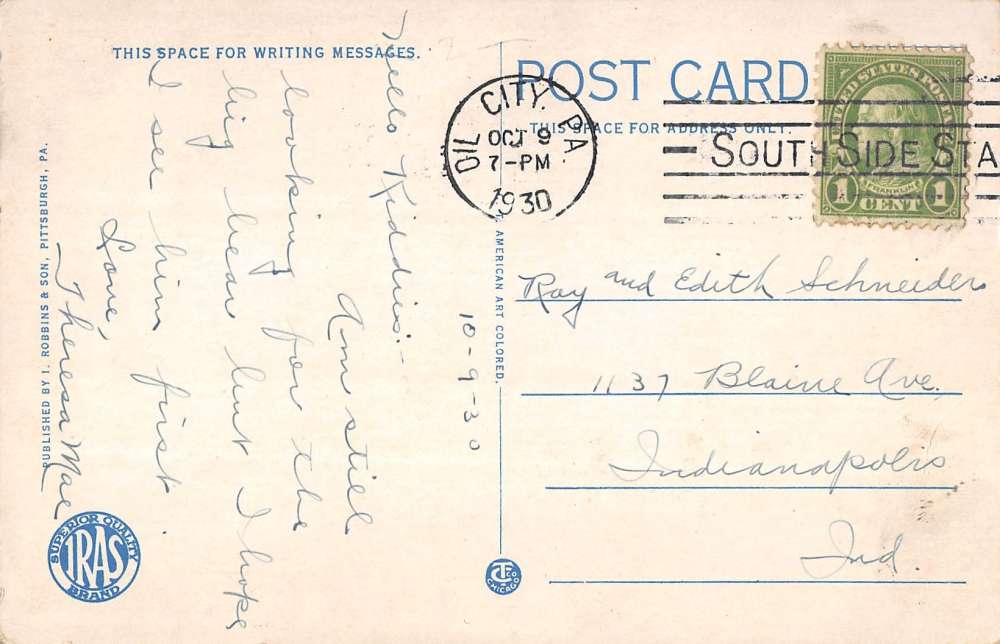 THIS SPACE FOR WRITING MESSAGES.
Hello Kiddies:-
Am still
looking for the
big bear but I hope
I see him first.
Love,
Theresa Mae
10-9-30
PUBLISHED BY I. ROBBINS & SON, PITTSBURGH, PA.
SUPERIOR QUALITY
IRAS
BRAND
AMERICAN ART COLORED.
CHICAGO
POST CARD
THIS SPACE FOR ADDRESS ONLY.
OIL CITY, PA.
OCT 9
7-PM
1930
SOUTH SIDE STA
UNITED STATES POSTAGE
FRANKLIN
1 CENT 1
Ray and Edith Schneider
1137 Blaine Ave.
Indianapolis
Ind.